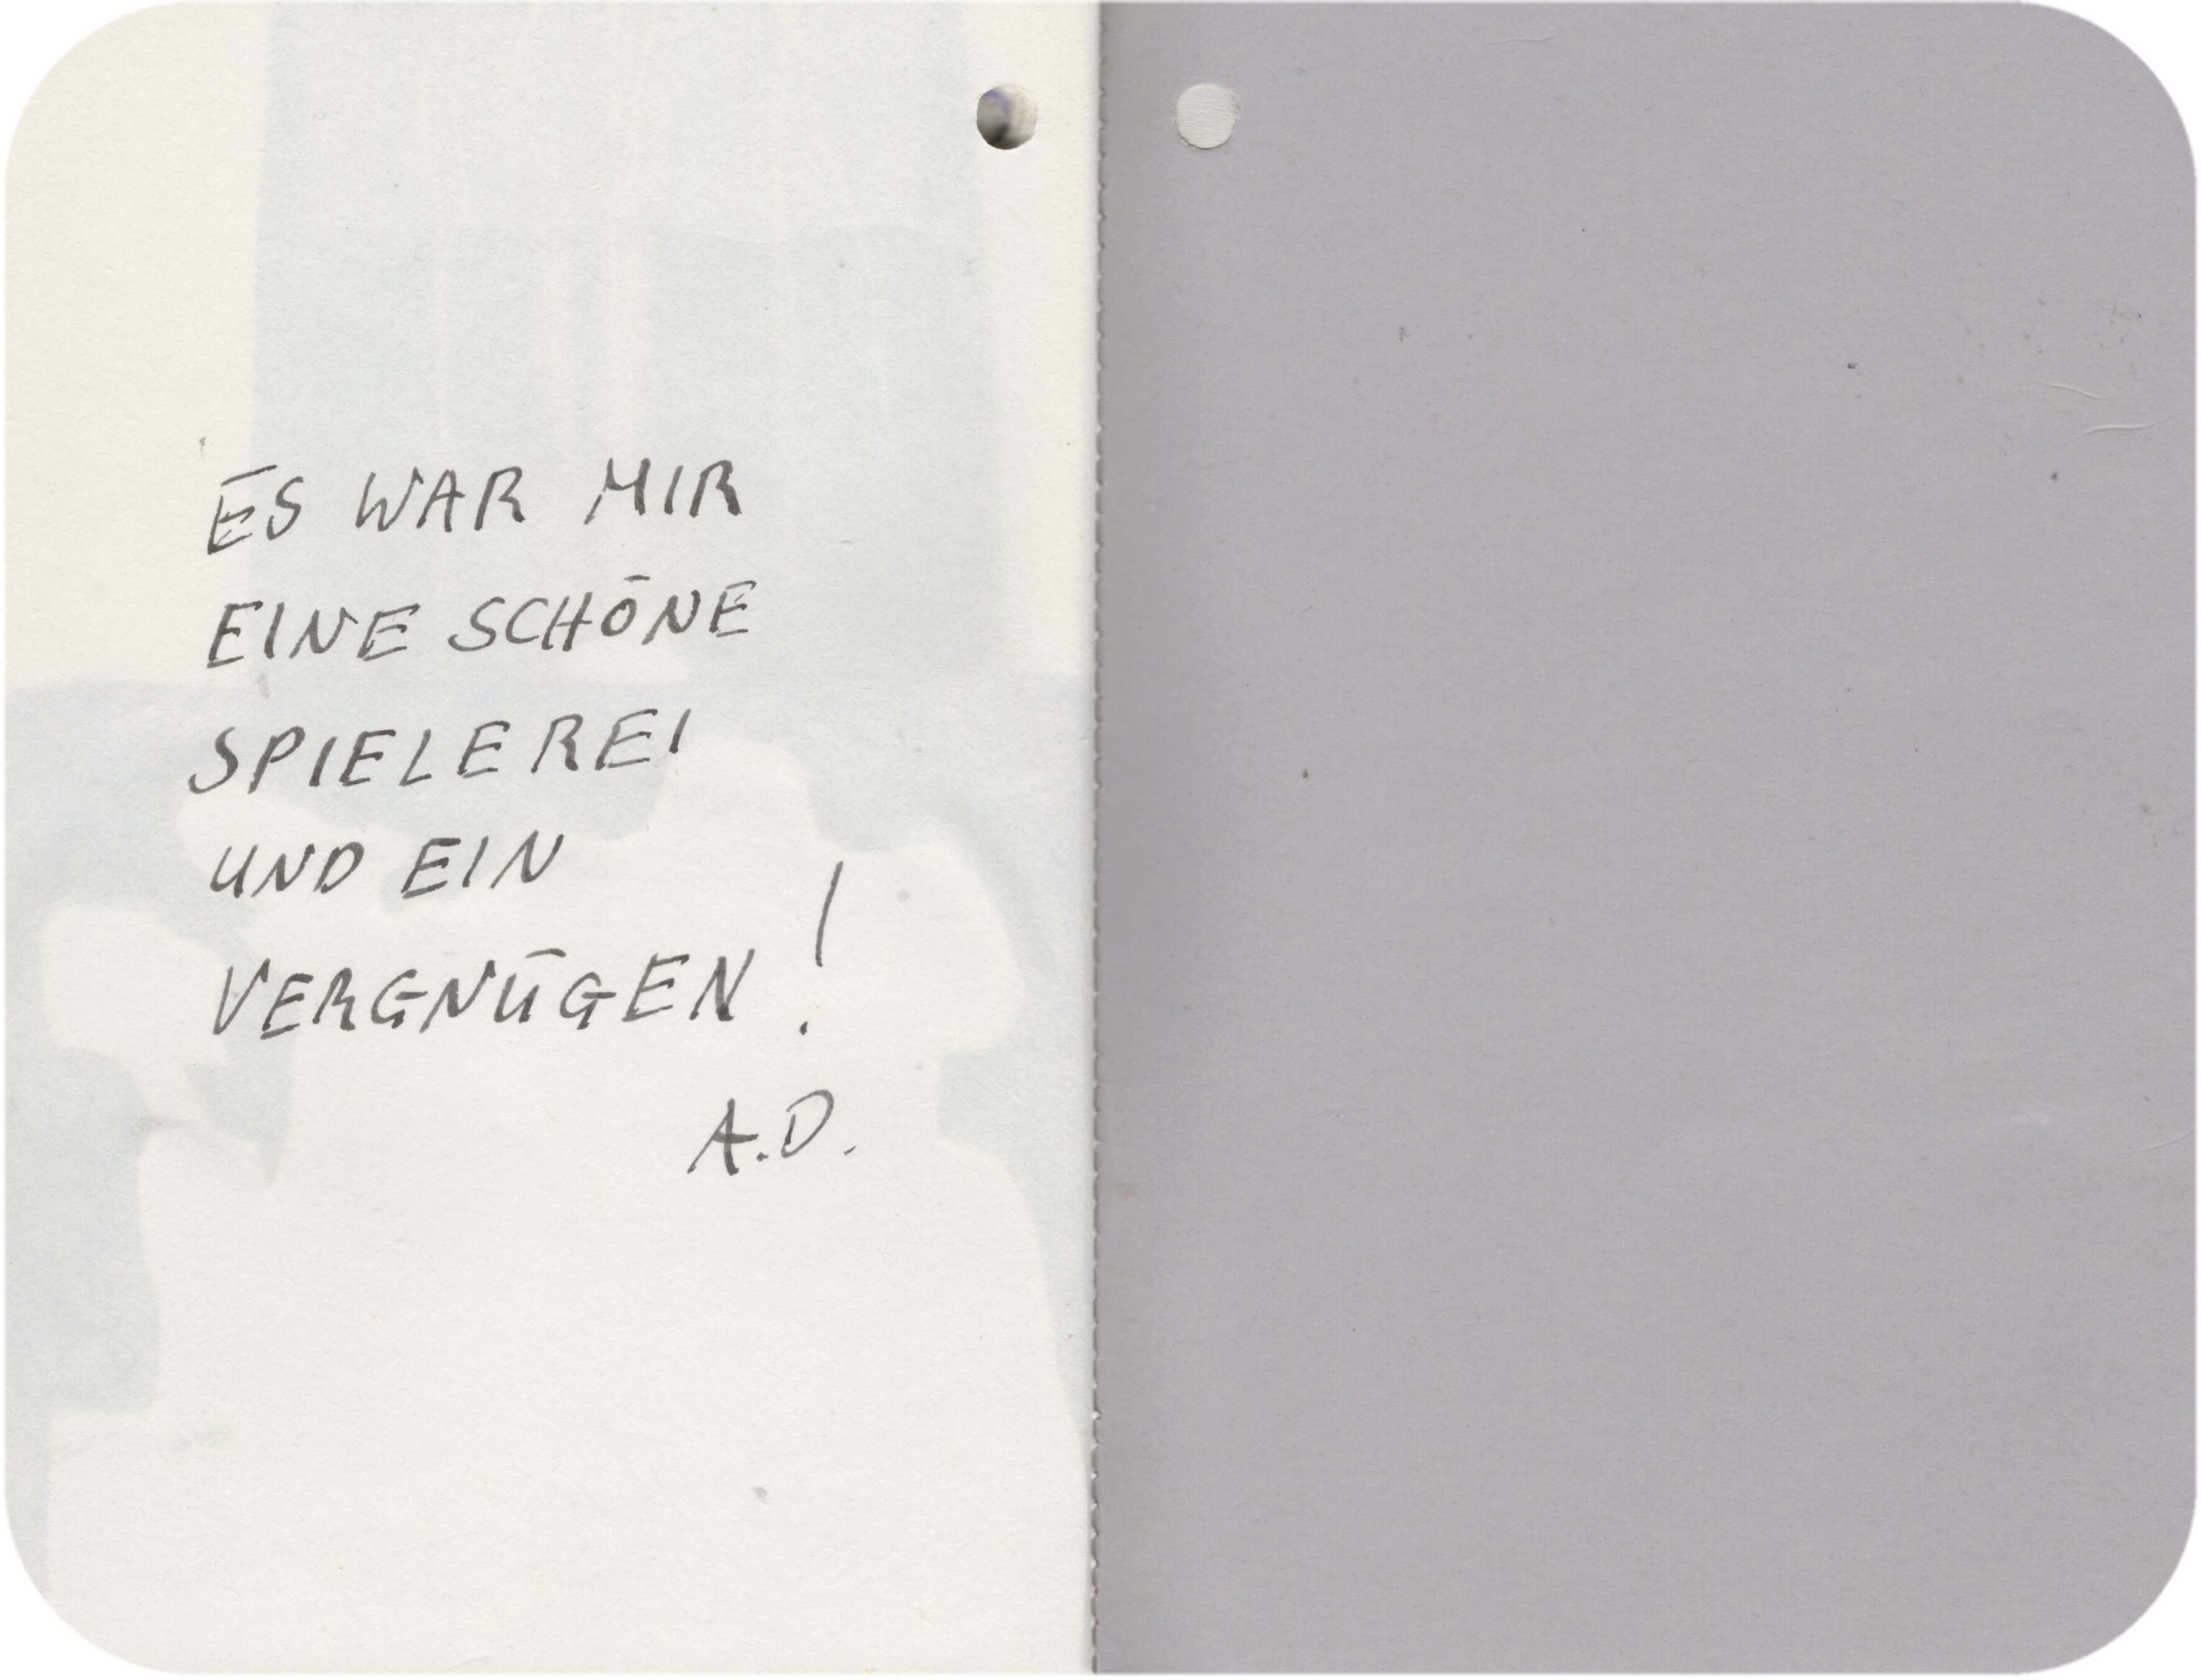 ES WAR MIR
EINE SCHÖNE
SPIELEREI
UND EIN
VERGNÜGEN!
A.D.